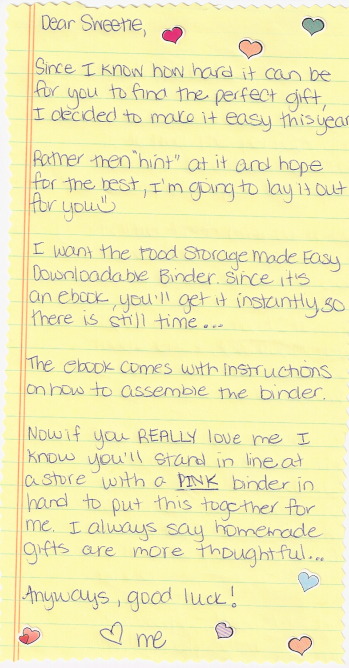 Dear Sweetie,
Since I know how hard it can be
for you to find the perfect gift,
I decided to make it easy this year
Rather then "hint" at it and hope
for the best, I'm going to lay it out
for you
I want the Food Storage Made Easy
Downloadable Binder. Since it's
an ebook, you'll get it instantly, so
there is still time...
The ebook comes with instructions
on how to assemble the binder.
Now if you REALLY love me I
know you'll stand in line at
a store with a PINK binder in
hand to put this together for
me. I always say homemade
gifts are more thoughtful...
Anyways, good luck!
♡ me